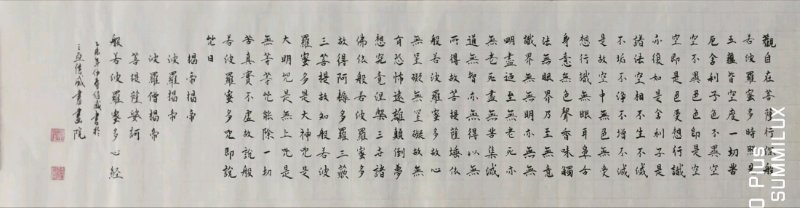 觀自在菩薩行深般
若波羅蜜多時照見
五蘊皆空度一切苦
厄舍利子色不異空
空不異色色即是空
空即是色受想行識
亦復如是舍利子是
諸法空相不生不滅
不垢不淨不增不減
是故空中無色無受
想行識無眼耳鼻舌
身意無色聲香味觸
法無眼界乃至無意
識界無無明亦無無
明盡乃至無老死亦
無老死盡無苦集滅
道無智亦無得以無
所得故菩提薩埵依
般若波羅蜜多故心
無罣礙無罣礙故無
有恐怖遠離顛倒夢
想究竟涅槃三世諸
佛依般若波羅蜜多
故得阿耨多羅三藐
三菩提故知般若波
羅蜜多是大神咒是
大明咒是無上咒是
無等等咒能除一切
苦真實不虛故說般
若波羅蜜多咒即說
咒曰
揭帝揭帝
波羅揭帝
波羅僧揭帝
菩提薩婆訶
般若波羅蜜多心經
年仲春書於
書畫院
0 Plus
SUMMILUX